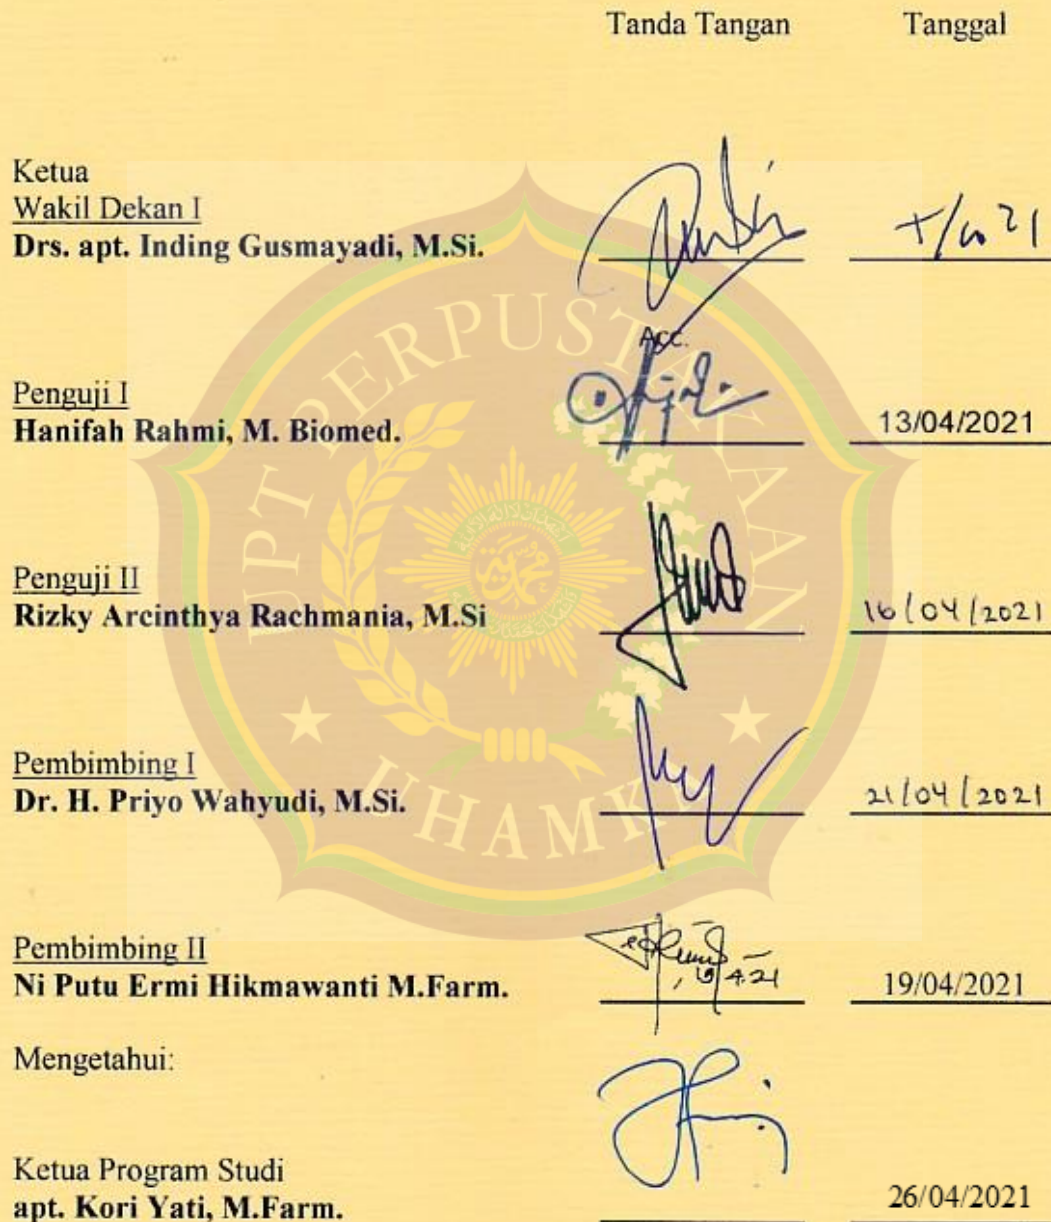 Tanda Tangan Tanggal
Ketua
Wakil Dekan I
Drs. apt. Inding Gusmayadi, M.Si.
Acc.
Penguji I
Hanifah Rahmi, M. Biomed. 13/04/2021
Penguji II
Rizky Arcinthya Rachmania, M.Si 16/04/2021
Pembimbing I
Dr. H. Priyo Wahyudi, M.Si. 21/04/2021
Pembimbing II
Ni Putu Ermi Hikmawanti M.Farm. 19/04/2021
Mengetahui:
Ketua Program Studi
apt. Kori Yati, M.Farm. 26/04/2021
UPT PERPUSTAKAAN
UHAMKA